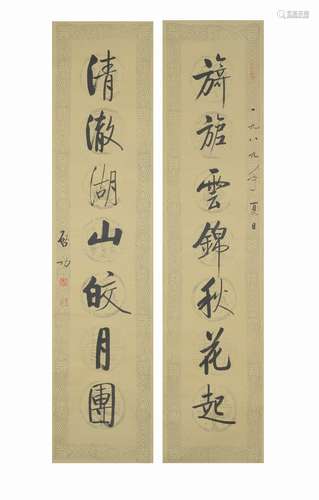 旖旎雲錦秋花起
一九八九年夏日
清澈湖山皎月團
啟功